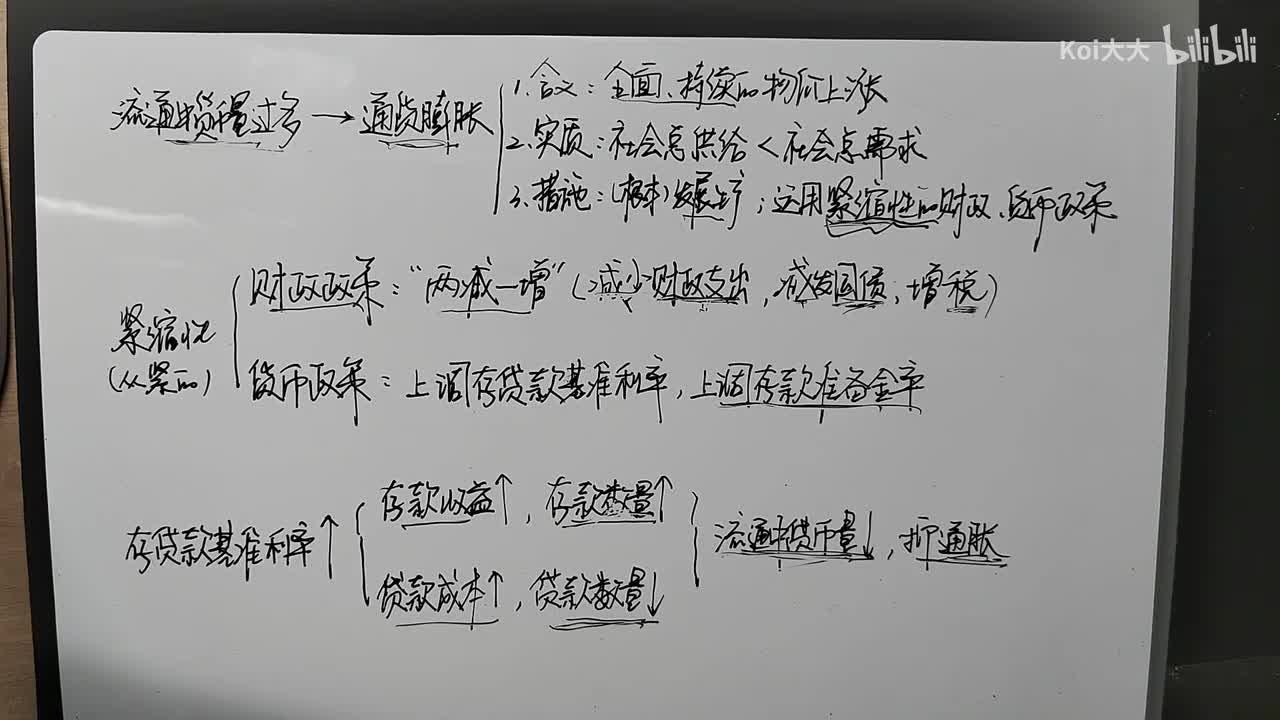 Koi大大 bilibili
流通中货币量过多→通货膨胀
1.含义：全面、持续的物价上涨
2.实质：社会总供给<社会总需求
3.措施：(根本)发展生产；运用紧缩性的财政、货币政策
紧缩性
(从紧的)
财政政策："两减一增"(减少财政支出，减发国债，增税)
货币政策：上调存贷款基准利率，上调存款准备金率
存贷款基准利率↑
存款收益↑，存款数量↑
贷款成本↑，贷款数量↓
流通中货币量↓，抑通胀